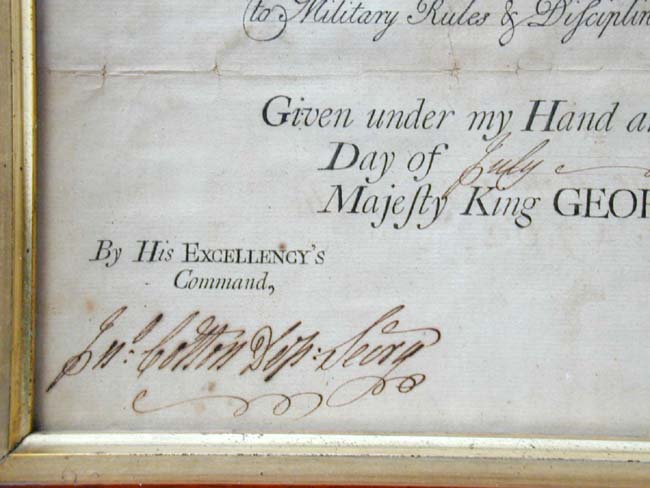 to Military Rules & Diſciplin
Given under my Hand a
Day of July
Majeſty King GEOR
By His EXCELLENCY'S
Command,
Jnº. Cotton Depy: Secry